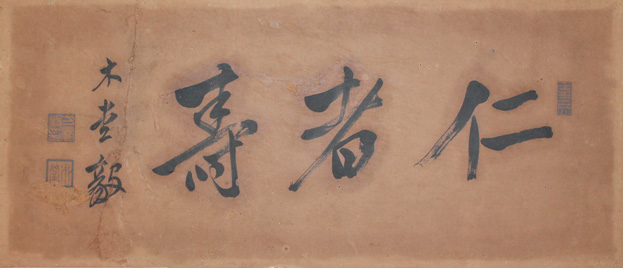 仁者壽
木堂毅